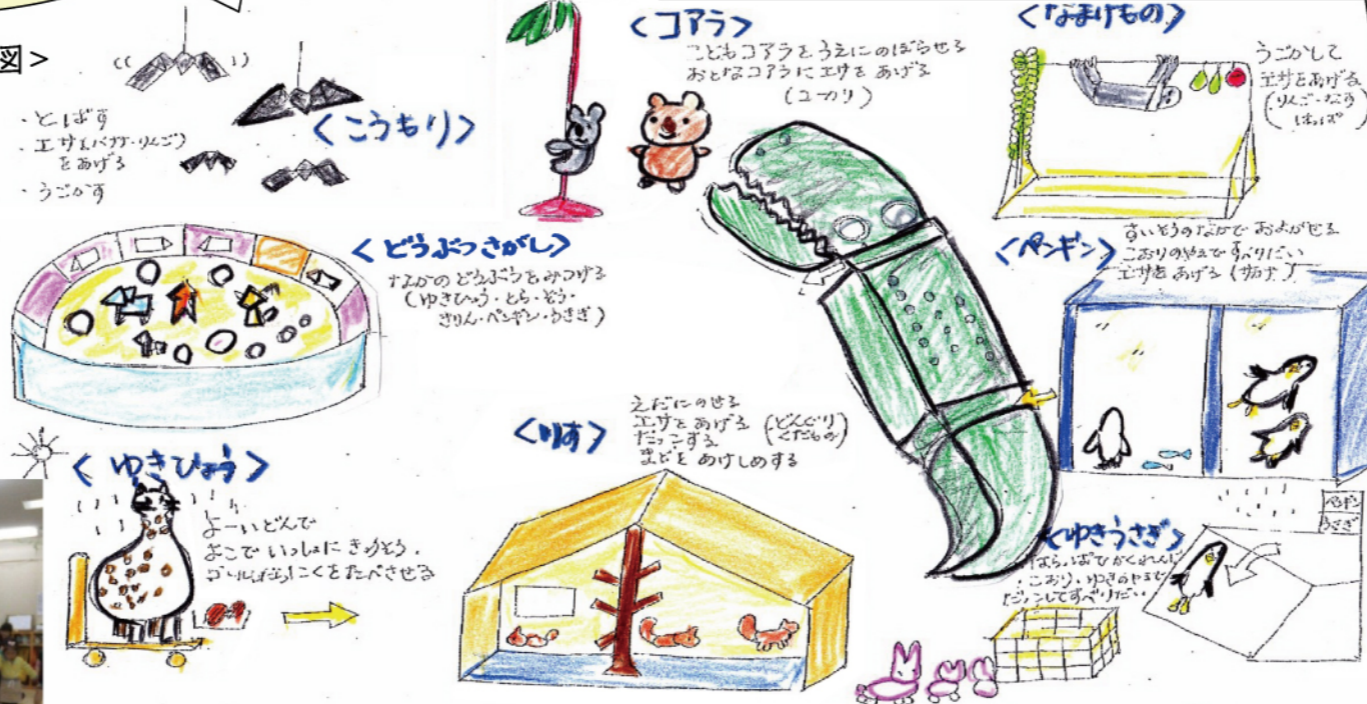 図>
<こうもり>
・とばす
・エサ(バナナ・りんご)
をあげる
・うごかす
<コアラ>
こどもコアラをうえにのぼらせる
おとなコアラにエサをあげる
(ユーカリ)
<なまけもの>
うごかして
エサをあげる
(りんご・なす
はっぱ)
<どうぶつさがし>
なかのどうぶつをみつける
(ゆきひょう・とら・ぞう・
きりん・ペンギン・うさぎ)
<ペンギン>
すいそうのなかでおよがせる
こおりのやまですべりだい
エサをあげる(サカナ)
<ゆきひょう>
よーいどんで
よこでいっしょにきょうそう.
ゴールしたらにくをたべさせる
<りす>
えだにのせる
エサをあげる(どんぐり
くだもの)
だっこする
まどをあけしめする
<ゆきうさぎ>
こおり・ゆきのやまで
だっこしてすべりだい
ペンギン
うさぎ